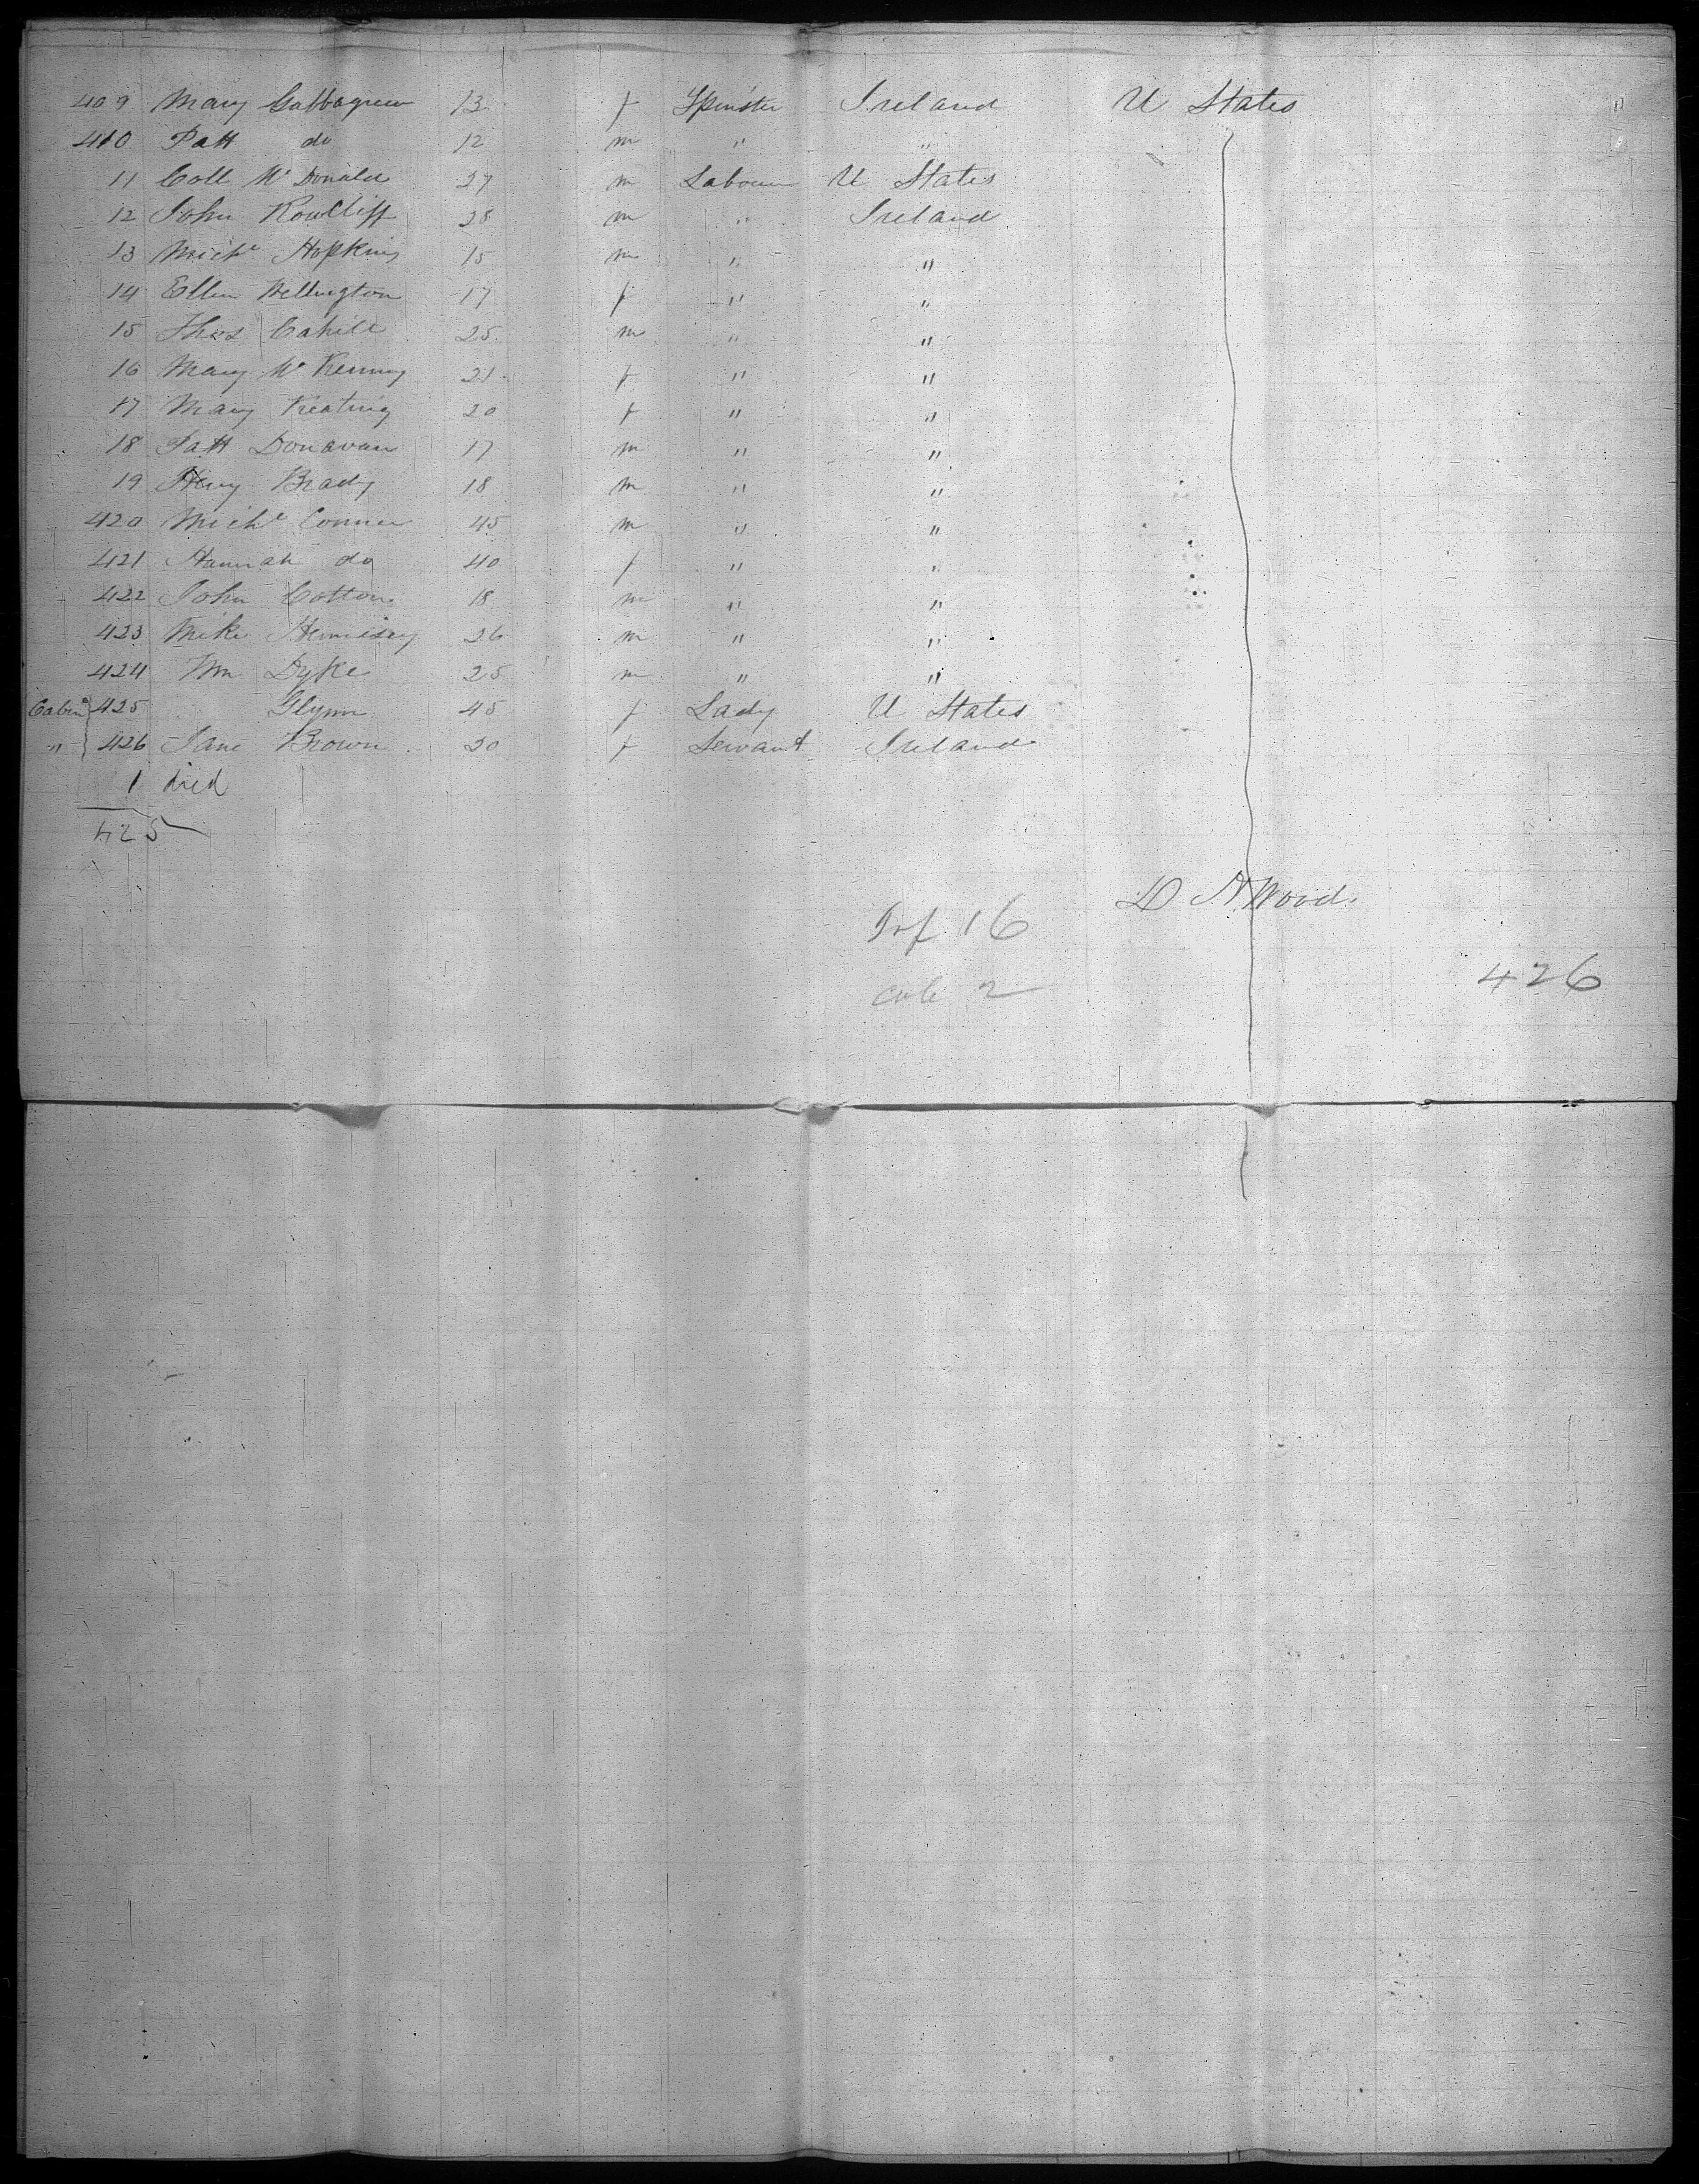 409 Mary Gallagrew 13 f Spinster Ireland U States
410 Patt do 12 m " "
11 Coll Mc Donald 27 m Labourer U States
12 John Rowcliff 28 m " Ireland
13 Michl Hopkins 15 m " "
14 Ellen Wellington 17 f " "
15 Thos Cahill 25 m " "
16 Mary Mc Kenny 21 f " "
17 Mary Keating 20 f " "
18 Patt Donavan 17 m " "
19 Henry Brady 18 m " "
420 Michl Conner 45 m " "
421 Hannah do 40 f " "
422 John Cotton 18 m " "
423 Mike Hennisey 26 m " "
424 Wm Dyke 25 m " "
Cabin 425 Glynn 45 f Lady U States
" 426 Jane Brown 20 f Servant Ireland
1 died
425
D H Wood
Inf 16
426
cab 2